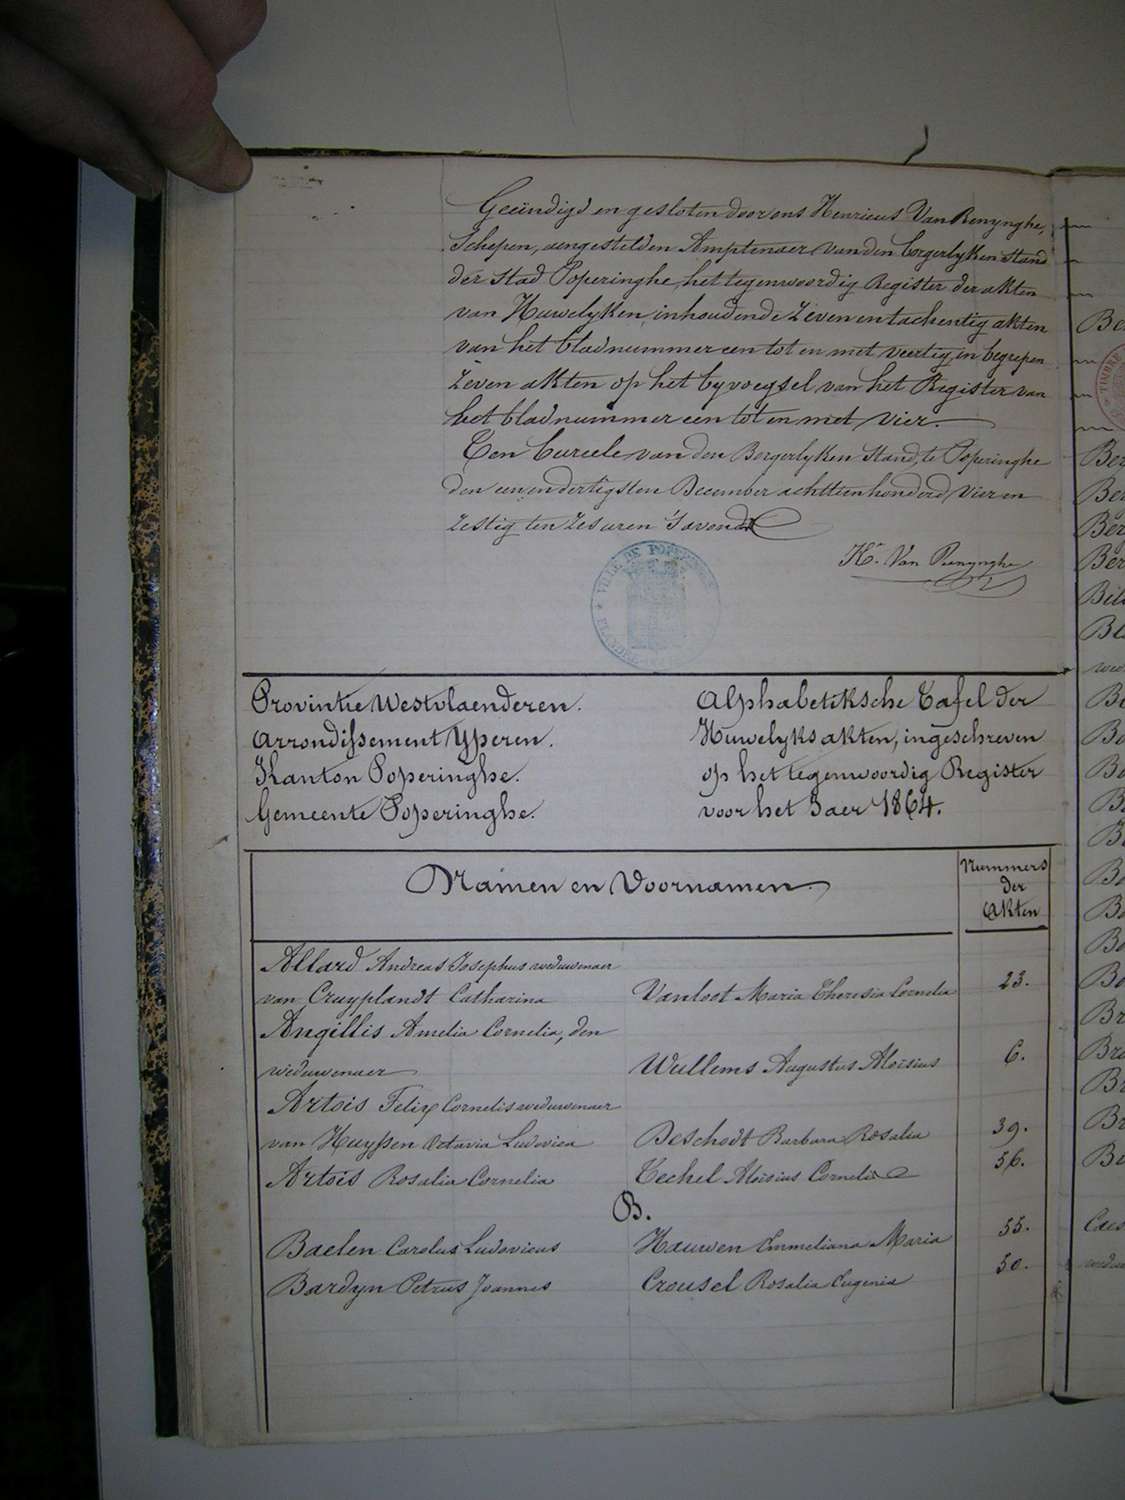 Geëindigd en gesloten door ons Henricus Van Renynghe,
Schepen, aengestelden Amptenaer van den borgerlyken stand
der Stad Poperinghe, het tegenwoordig Register der akten
van Huwelyken, inhoudende Zeven en tachentig akten
van het bladnummer een tot en met veertig, in begrepen
Zeven akten op het byvoegsel van het Register van
het bladnummer een tot en met vier.
Ten bureele van den Borgerlyken Stand, te Poperinghe
den een en dertigsten December achttien honderd, vier en
Zestig ten Zes uren 's avonds
Hs. Van Renynghe
VILLE DE POPERINGHE
Provintie Westvlaenderen.
Arrondissement Yperen.
Kanton Poperinghe.
Gemeente Poperinghe.
Alphabetiksche Tafel der
Huwelyksakten, ingeschreven
op het tegenwoordig Register
voor het Jaer 1864.
Namen en Voornamen
Nummers
der
Akten
Allard Andreas Josephus weduwenaer
van Cruyplandt Catharina Vanloot Maria Theresia Cornelia 23.
Angillis Amelia Cornelia, den
weduwenaer Wullems Augustus Aloïsius 6.
Artois Felix Cornelis weduwenaer
van Huyssen Octavia Ludovica Deschodt Barbara Rosalia 39.
Artois Rosalia Cornelia Techel Aloïsius Cornelis 56.
B.
Baelen Carolus Ludovicus Hauwen Emmeliana Maria 55.
Bardyn Petrus Joannes Crousel Rosalia Eugenia 50.
TIMBRE